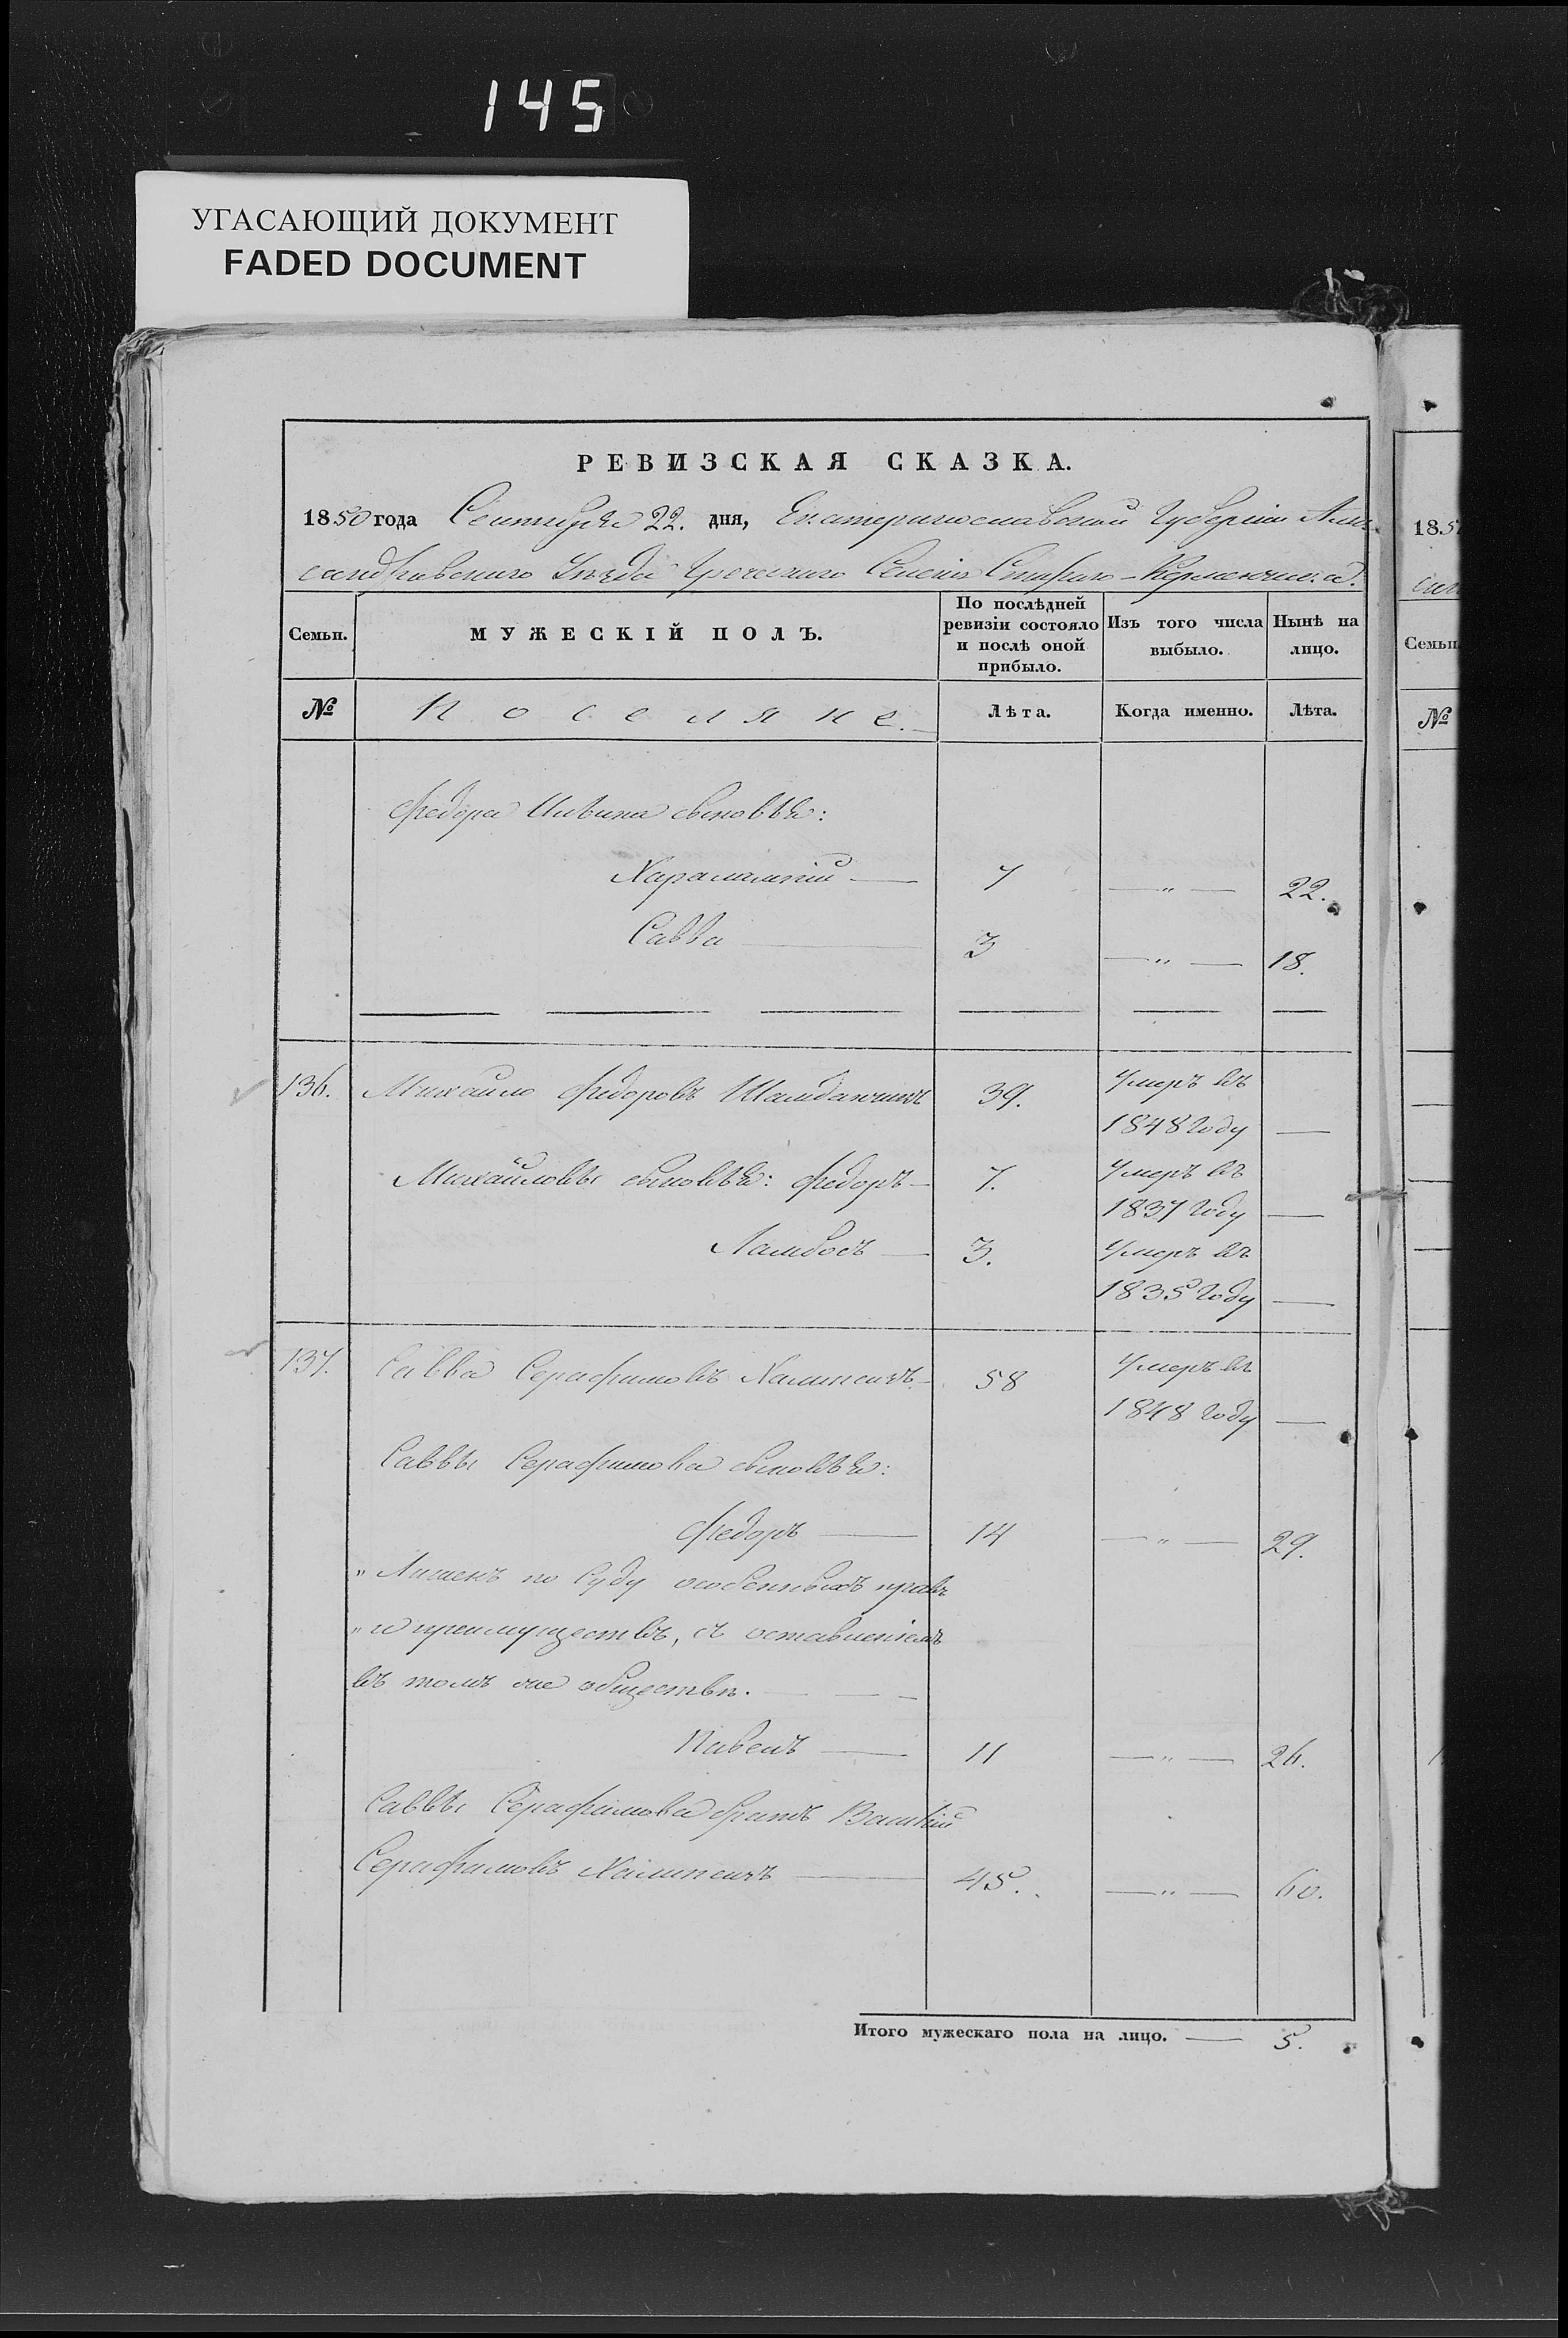 145
УГАСАЮЩИЙ ДОКУМЕНТ
FADED DOCUMENT
РЕВИЗСКАЯ СКАЗКА.
1850 года Сентября 22. дня, Екатеринославской Губерніи Алек-
сандровскаго Уѣзда Греческаго Селенія Старо-Керменчика.
Семьи.
МУЖЕСКІЙ ПОЛЪ.
По послѣдней ревизіи состояло и послѣ оной прибыло.
Изъ того числа выбыло.
Нынѣ на лицо.
№ Поселяне. Лѣта. Когда именно. Лѣта.
Федора сыновья:
Харалампій — 7 — " — 22.
Савва — 3 — " — 18.
136. Михайло Федоровъ 39. Умеръ въ
1848 году —
Михайловы сыновья: Федоръ — 7. Умеръ въ
1837 году —
Ламбосъ — 3. Умеръ въ
1835 году —
137. Савва Серафимовъ — 58 Умеръ въ
1848 году —
Саввы Серафимова сыновья:
Федоръ — 14 — " — 29.
" Лишенъ по суду особенныхъ правъ
" и преимуществъ, съ оставленіемъ
въ томъ же обществѣ. — — —
Павелъ — 11 — " — 26.
Саввы Серафимова братъ Василій
Серафимовъ — 45. — " — 60.
Итого мужескаго пола на лицо. — 5.
185
Семьи
№